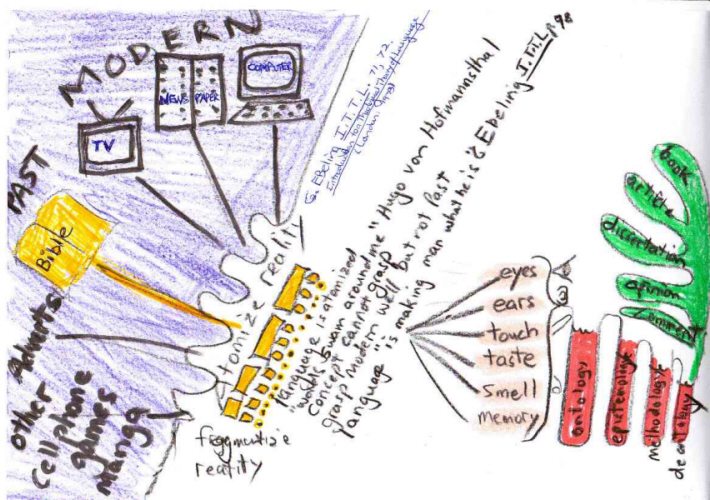 MODERN
PAST
TV
NEWS PAPER
COMPUTER
Bible
Adverts
other
cell phone
games
Manga
G. Ebeling I.T.T.L. 71, 72.
Introduction to a Theological Theory of Language
(London: 1973)
tomize reality
language is atomized
"words swam around me" Hugo von Hofmannsthal
concept cannot grasp
grasp modern well but not Past
language "is making man what he is" G Ebeling I.T.T.L. p. 98
fragmentize
reality
eyes
ears
touch
taste
smell
memory
ontology
epistemology
methodology
deontology
book
article
dissertation
opinion
comment